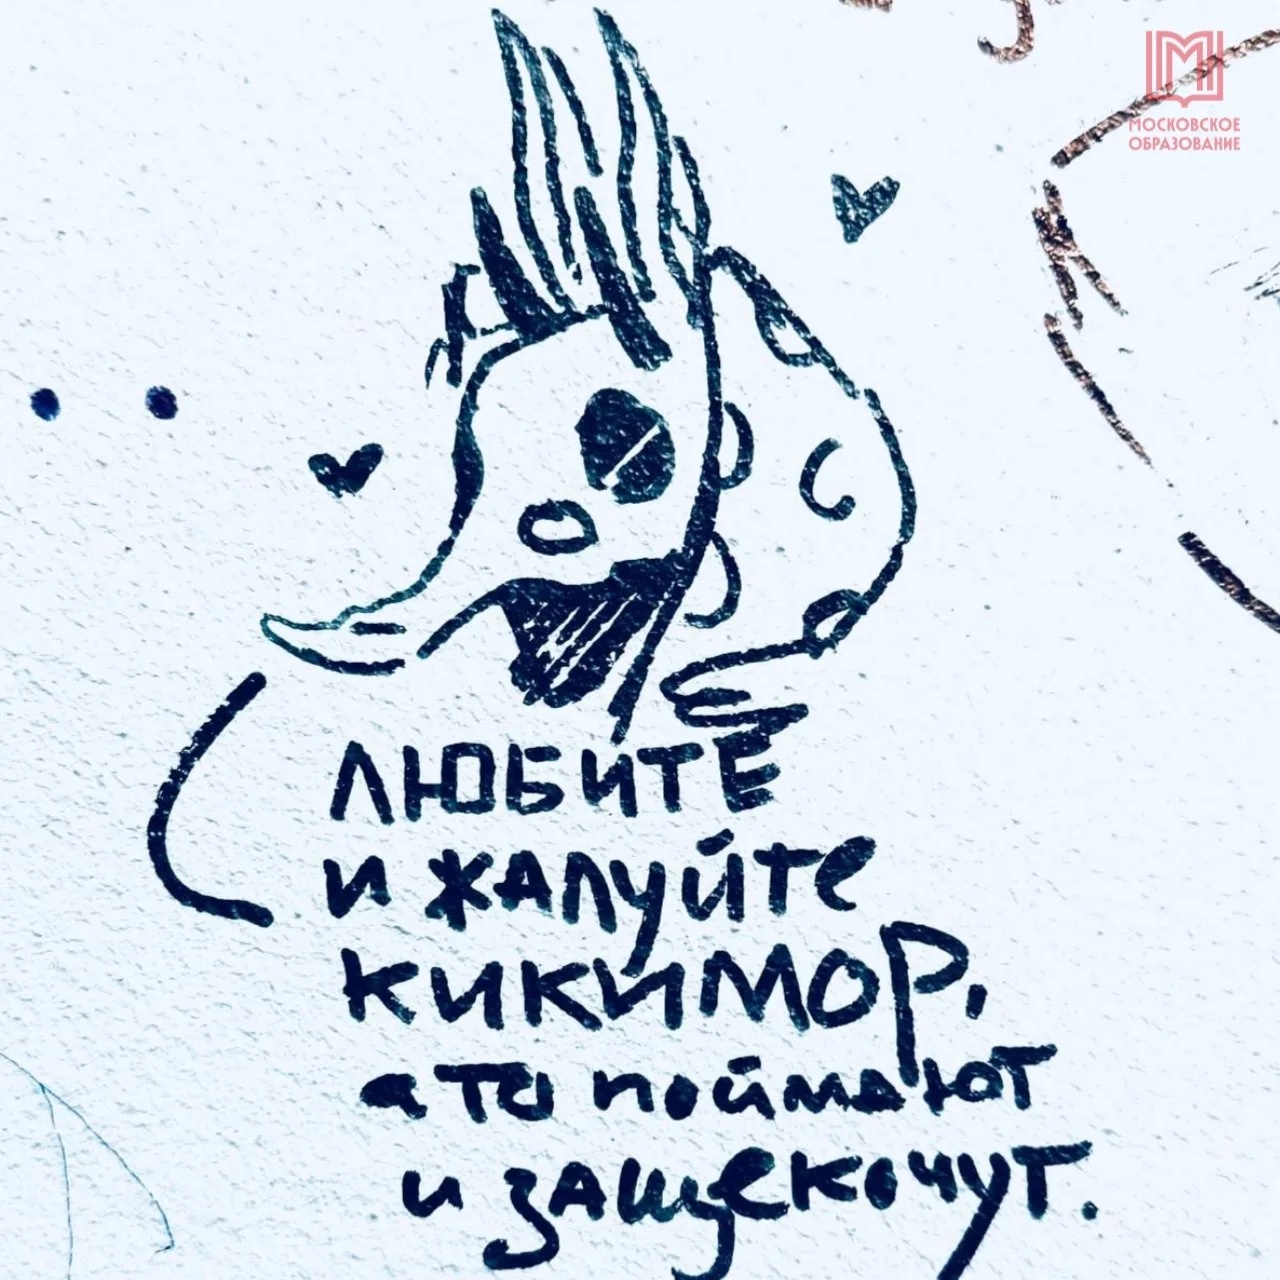 МОСКОВСКОЕ
ОБРАЗОВАНИЕ
ЛЮБИТЕ
и жалуйте
кикимор,
а то поймают
и защекочут.